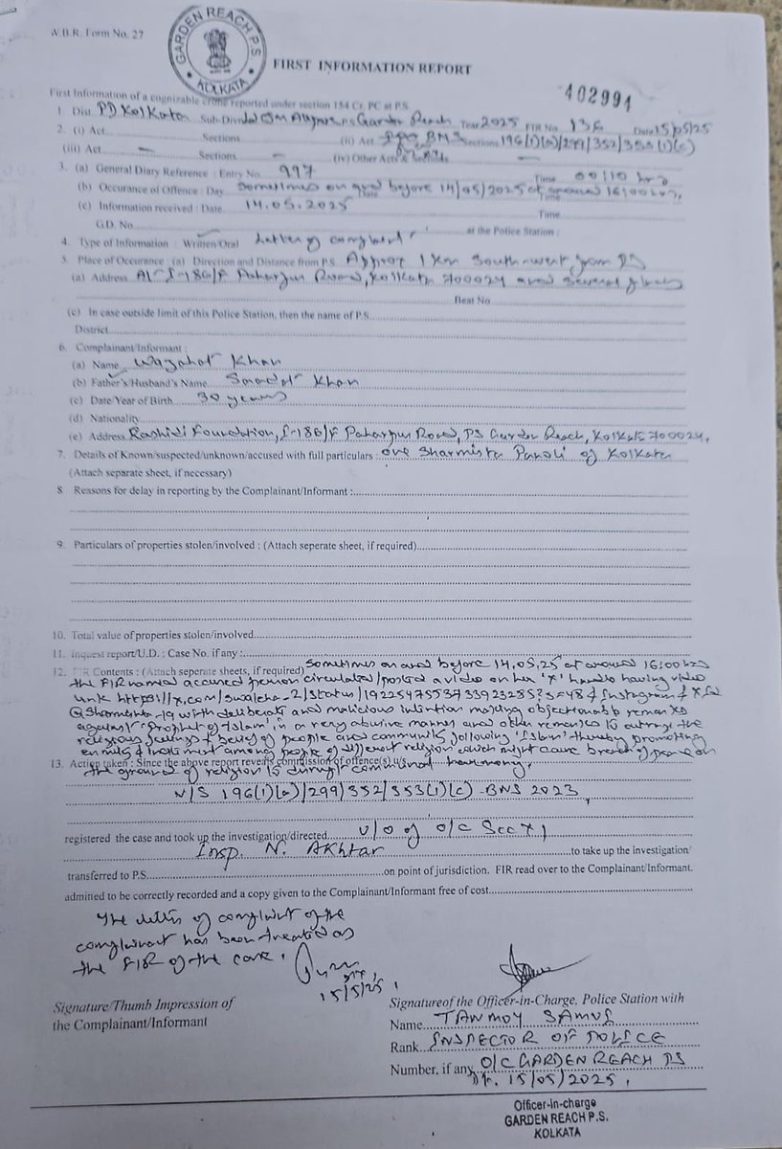 W.B.R. Form No. 27
GARDEN REACH P.S.
KOLKATA
FIRST INFORMATION REPORT
402991
First Information of a cognizable crime reported under section 154 Cr. PC at P.S.
1. Dist. PD Kolkata Sub-Divn. P.S. Garden Reach Year 2025 FIR No. 136 Date 15/05/25
2. (i) Act Sections (ii) Act BNS Sections 196(1)(a)/299/352/353(1)(c)
(iii) Act — Sections — (iv) Other Acts & Sections
3. (a) General Diary Reference : Entry No. 997 Time 00:10 hrs
(b) Occurance of Offence : Day Sometimes on and before 14/05/2025 at around 16:00 hrs.
(c) Information received : Date 14.05.2025 Time
G.D. No. at the Police Station :
4. Type of Information : Written/Oral Letter of complaint
5. Place of Occurance : (a) Direction and Distance from P.S. Approx 1 Km South west from PS
(a) Address At I-186/F Paharpur Road, Kolkata 700024 and several places
Beat No
(c) In case outside limit of this Police Station, then the name of P.S.
District
6. Complainant/Informant :
(a) Name Wazahat Khan
(b) Father's/Husband's Name Saadat Khan
(c) Date/Year of Birth 30 years
(d) Nationality
(e) Address Rashidi Foundation, I-186/F Paharpur Road, PS Garden Reach, Kolkata 700024.
7. Details of Known/suspected/unknown/accused with full particulars : one Sharmista Panoli of Kolkata
(Attach separate sheet, if necessary)
8. Reasons for delay in reporting by the Complainant/Informant :
9. Particulars of properties stolen/involved : (Attach seperate sheet, if required)
10. Total value of properties stolen/involved
11. Inquest report/U.D. : Case No. if any :
12. FIR Contents : (Attach seperate sheets, if required) Sometimes on and before 14.05.25 at around 16:00 hrs
the FIR named accused person circulated/posted a video on her 'X' handle having video
link & Instagram
with deliberate and malicious intention making objectionable remarks
against 'Prophet of Islam' in a very abusive manner and other remarks to outrage the
religious feelings & beliefs of people and community following 'Islam' thereby promoting
enmity & among people of different religion which might cause breach of peace on
13. Action taken : Since the above report reveals commission of offence(s) u/s
the ground of religion communal harmony.
U/S 196(1)(a)/299/352/353(1)(c) BNS 2023,
registered the case and took up the investigation/directed u/o of O/C
Insp. N. Akhtar to take up the investigation/
transferred to P.S. on point of jurisdiction. FIR read over to the Complainant/Informant.
admitted to be correctly recorded and a copy given to the Complainant/Informant free of cost
The letter of complaint of the
complainant has been treated as
the FIR of the case.
15/5/25
Signature/Thumb Impression of
the Complainant/Informant
Signatureof the Officer-in-Charge, Police Station with
Name TANMOY SAMUI
Rank INSPECTOR OF POLICE
Number, if any O/C GARDEN REACH PS
Dt. 15/05/2025.
Officer-in-charge
GARDEN REACH P.S.
KOLKATA